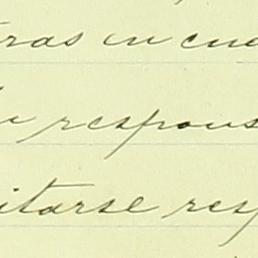 ras en cua
u respons
itarse resp